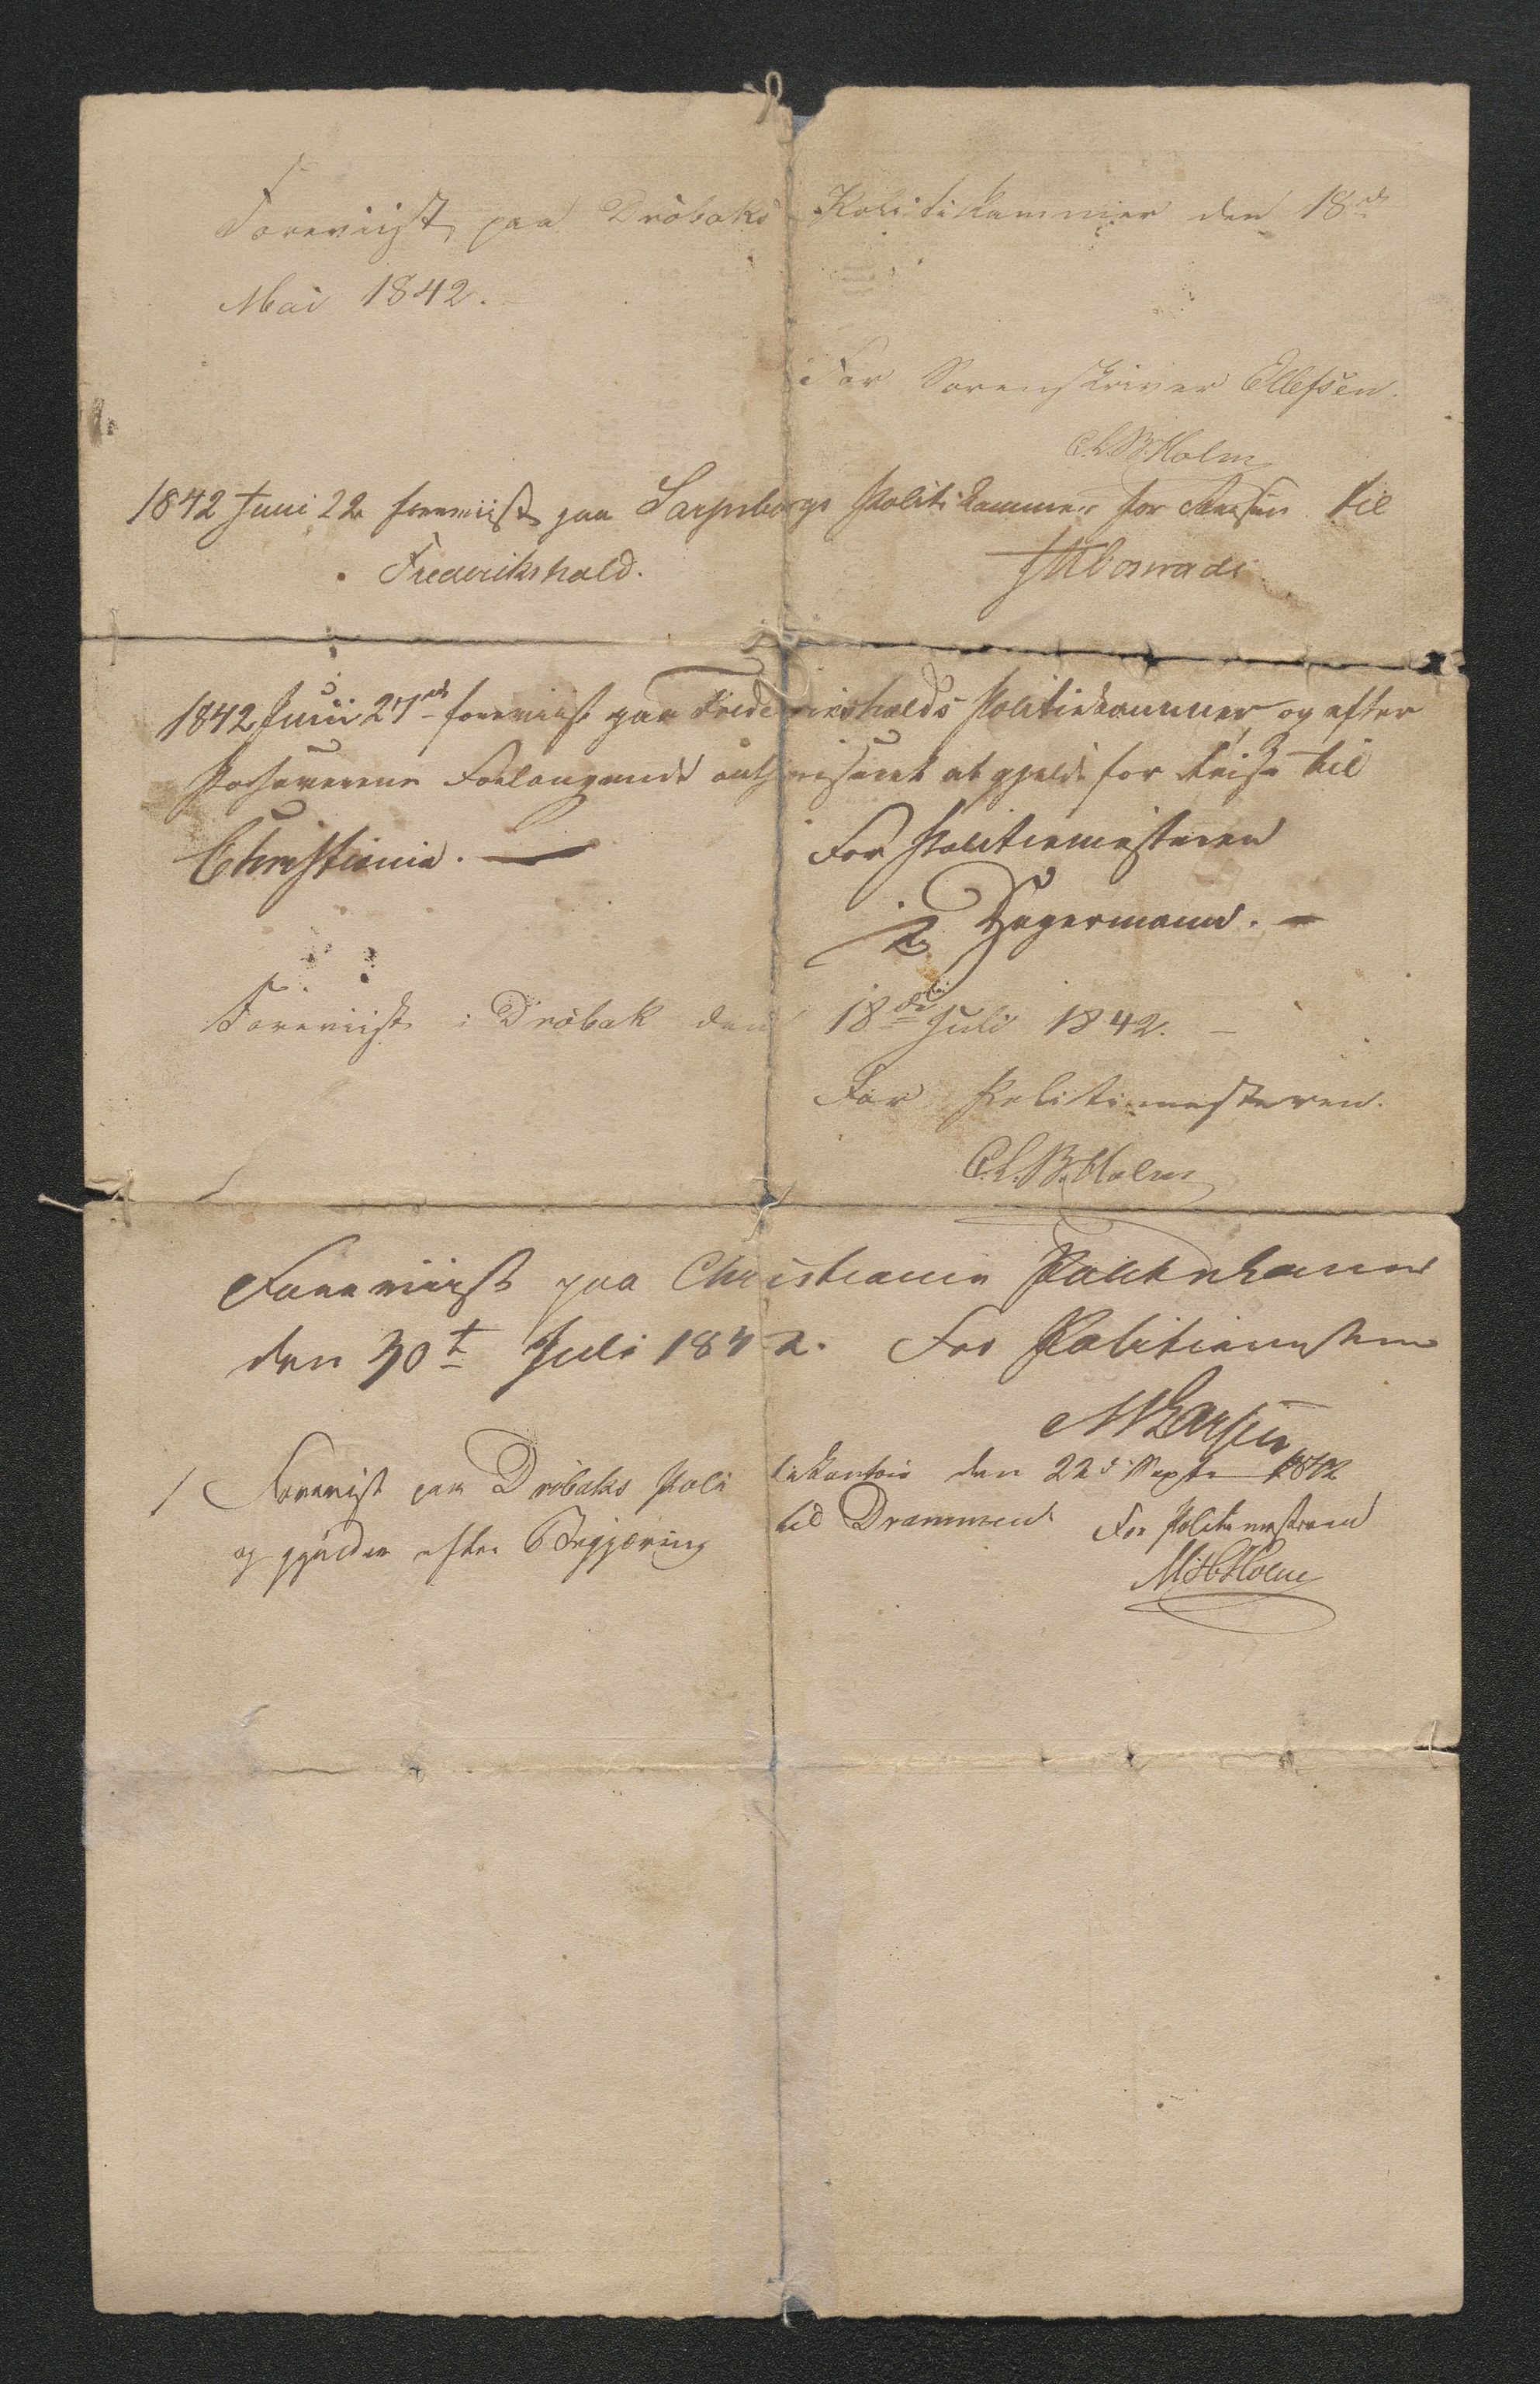 Foreviist paa Dröbaks Politikammer den 18de
Mai 1842.
For Sorenskriver Ellefsen.
C.L.B. Holm
1842 Juni 22 foreviist paa Sarpsborgs Politikammer for Reisen til
Frederikshald.
1842 Juni 27de foreviist paa Frederikshalds Politiekammer, og efter
Passeverens Forlangende authoriseret at gjelde for Reise til
Christiania.
For Politiemesteren
Hagermann.
Foreviist i Dröbak den 18de Juli 1842.
For Politiemesteren.
C.L.B. Holm
Foreviist paa Christiania Politiekammer
den 30t Juli 1842. For Politiemesteren
Larsen
Foreviist paa Dröbaks Politikontoir den 22d Septr 1842
og gjælder efter Begjæring til Drammen
For Politiemesteren
Holm